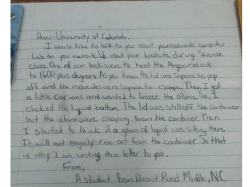 Dear University of Colorado,
I would like to talk to you about your website computer
Lab on you website. We used your website during Science
class. One of our tests were to heat the
to 1600 plus degrees. As you know the lid was
off and the molecules were to escape. Then, I got
a little curious and wanted to freeze the atoms. So, I
clicked the liquid bottom. The lid was still off the container
but the atoms were escaping from the container. Then
I started to think if a glass of liquid was sitting there
It will not escape from out from the container. So that
is why I am writing this letter to you.
From,
A student from Durant Road Middle, NC